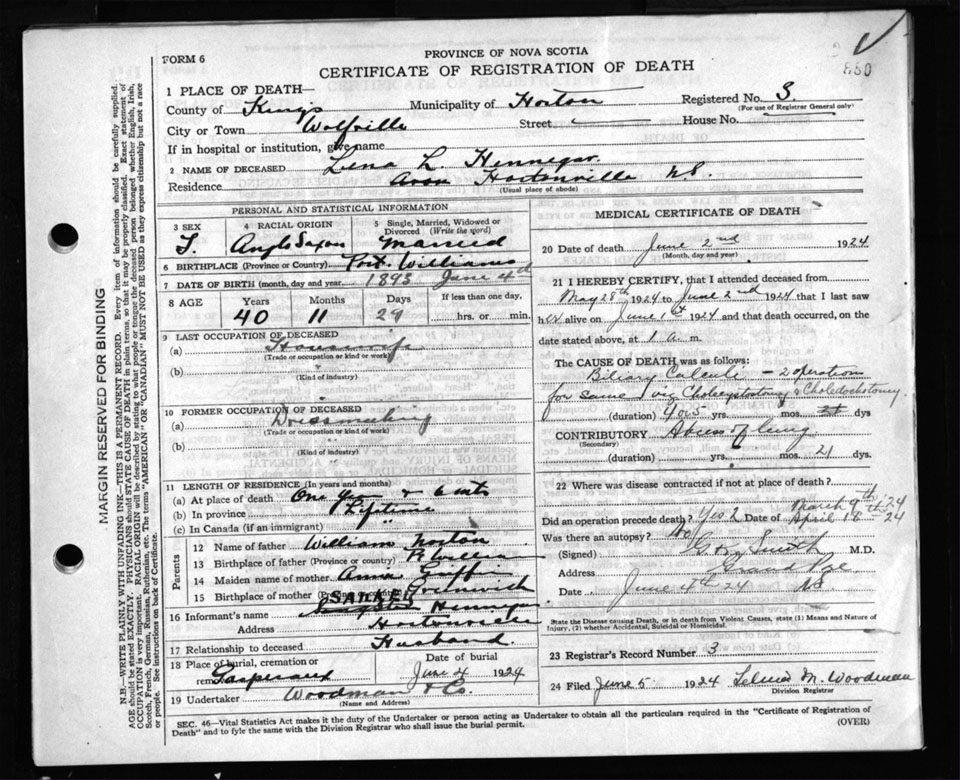 PROVINCE OF NOVA SCOTIA
FORM 6
CERTIFICATE OF REGISTRATION OF DEATH
880
1 PLACE OF DEATH—
County of Kings Municipality of Horton Registered No. 3
(For use of Registrar General only)
City or Town Wolfville Street House No.
If in hospital or institution, give name
2 NAME OF DECEASED Lena L. Hennegar
Residence Avon Hortonville NS.
(Usual place of abode)
PERSONAL AND STATISTICAL INFORMATION
3 SEX 4 RACIAL ORIGIN 5 Single, Married, Widowed or Divorced (Write the word)
F. Anglo Saxon Married
6 BIRTHPLACE (Province or Country) Port Williams
7 DATE OF BIRTH (month, day and year) 1893 June 4th
8 AGE Years Months Days If less than one day,
40 11 29 hrs. or min.
9 LAST OCCUPATION OF DECEASED
(a) Housewife
(Trade or occupation or kind or work)
(b)
(Kind of industry)
10 FORMER OCCUPATION OF DECEASED
(a) Dressmaking
(Trade or occupation or kind of work)
(b) "
(Kind of industry)
11 LENGTH OF RESIDENCE (In years and months)
(a) At place of death One Year & 6 mts
(b) In province Lifetime
(c) In Canada (if an immigrant) "
Parents
12 Name of father William Norton
13 Birthplace of father (Province or country) P. Williams
14 Maiden name of mother Anna Griffin
15 Birthplace of mother (Province or country) Greenwich
16 Informant's name Hennegar
Address Hortonville
17 Relationship to deceased Husband.
18 Place of burial, cremation or removal Gaspereaux Date of burial June 4 1924
19 Undertaker Woodman & Co.
(Name and Address)
MEDICAL CERTIFICATE OF DEATH
20 Date of death June 2nd 1924
(Month, day and year)
21 I HEREBY CERTIFY, that I attended deceased from
May 28th 1924 to June 2nd 1924 that I last saw
her alive on June 1st 1924 and that death occurred, on
date stated above, at 1 a. m.
The CAUSE OF DEATH was as follows:
Biliary Calculi — 2 operations
for same viz Cholecystostomy & Choledochotomy
(duration) 4 or 5 yrs. mos. dys
CONTRIBUTORY Abscess of lung
(Secondary)
(duration) yrs. mos. 21 dys.
22 Where was disease contracted if not at place of death?
Did an operation precede death? Yes 2 Date of March 9th 24
April 18th 24
Was there an autopsy? No
(Signed) Smith M.D.
Address Grand Pre
Date June 4th 24 NS.
State the Disease causing Death, or in death from Violent Causes, state (1) Means and Nature of
Injury, (2) whether Accidental, Suicidal or Homicidal.
23 Registrar's Record Number 3
24 Filed June 5 1924 M. Woodman
Division Registrar
SEC. 46—Vital Statistics Act makes it the duty of the Undertaker or person acting as Undertaker to obtain all the particulars required in the "Certificate of Registration of
Death" and to fyle the same with the Division Registrar who shall issue the burial permit.
(OVER)
MARGIN RESERVED FOR BINDING
N.B.—WRITE PLAINLY WITH UNFADING INK—THIS IS A PERMANENT RECORD. Every item of information should be carefully supplied.
AGE should be stated EXACTLY. PHYSICIANS should STATE CAUSE OF DEATH in plain terms, so that it may be properly classified. Exact statement of
OCCUPATION is very important. RACIAL ORIGIN will be described by stating to what people or tongue the deceased person belonged whether English, Irish,
Scotch, French, German, Russian, Ruthenian, etc. The terms "AMERICAN" OR "CANADIAN" MUST NOT BE USED as they express citizenship but not a race
or people. See instructions on back of Certificate.